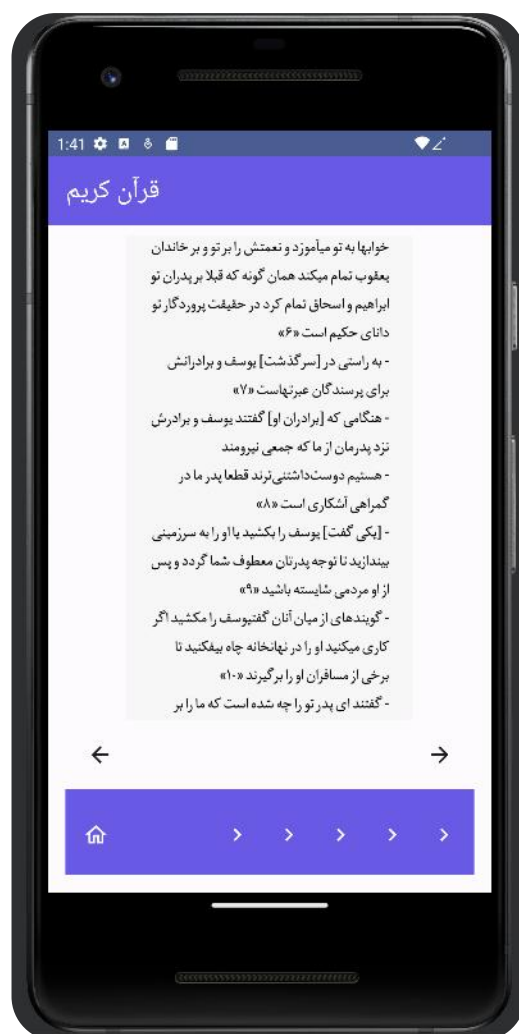 1:41
قرآن کریم
خوابها به تو میآموزد و نعمتش را بر تو و بر خاندان
یعقوب تمام میکند همان گونه که قبلا بر پدران تو
ابراهیم و اسحاق تمام کرد در حقیقت پروردگار تو
دانای حکیم است «۶»
- به راستی در [سرگذشت] یوسف و برادرانش
برای پرسندگان عبرتهاست «۷»
- هنگامی که [برادران او] گفتند یوسف و برادرش
نزد پدرمان از ما که جمعی نیرومند
- هستیم دوست‌داشتنی‌ترند قطعا پدر ما در
گمراهی آشکاری است «۸»
- [یکی گفت] یوسف را بکشید یا او را به سرزمینی
بیندازید تا توجه پدرتان معطوف شما گردد و پس
از او مردمی شایسته باشید «۹»
- گویندهای از میان آنان گفتیوسف را مکشید اگر
کاری میکنید او را در نهانخانه چاه بیفکنید تا
برخی از مسافران او را برگیرند «۱۰»
- گفتند ای پدر تو را چه شده است که ما را بر